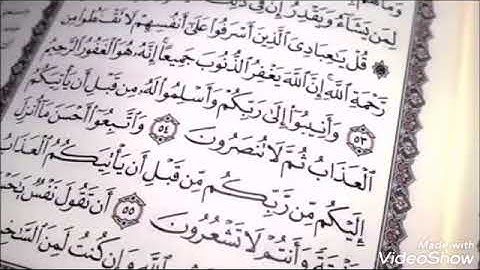 لِمَن يَشَآءُ وَيَقْدِرُ إِنَّ فِي
۞ قُلْ يَٰعِبَادِيَ ٱلَّذِينَ أَسْرَفُوا۟ عَلَىٰٓ أَنفُسِهِمْ لَا تَقْنَطُوا۟ مِن
رَّحْمَةِ ٱللَّهِ إِنَّ ٱللَّهَ يَغْفِرُ ٱلذُّنُوبَ جَمِيعًا إِنَّهُۥ هُوَ ٱلْغَفُورُ ٱلرَّحِيمُ
٥٣ وَأَنِيبُوٓا۟ إِلَىٰ رَبِّكُمْ وَأَسْلِمُوا۟ لَهُۥ مِن قَبْلِ أَن يَأْتِيَكُمُ
ٱلْعَذَابُ ثُمَّ لَا تُنصَرُونَ ٥٤ وَٱتَّبِعُوٓا۟ أَحْسَنَ مَآ أُنزِلَ
إِلَيْكُم مِّن رَّبِّكُم مِّن قَبْلِ أَن يَأْتِيَكُمُ ٱلْعَذَابُ
بَغْتَةً وَأَنتُمْ لَا تَشْعُرُونَ ٥٥ أَن تَقُولَ نَفْسٌ
ٱللَّهِ وَإِن كُنتُ لَمِنَ
Made with
VideoShow